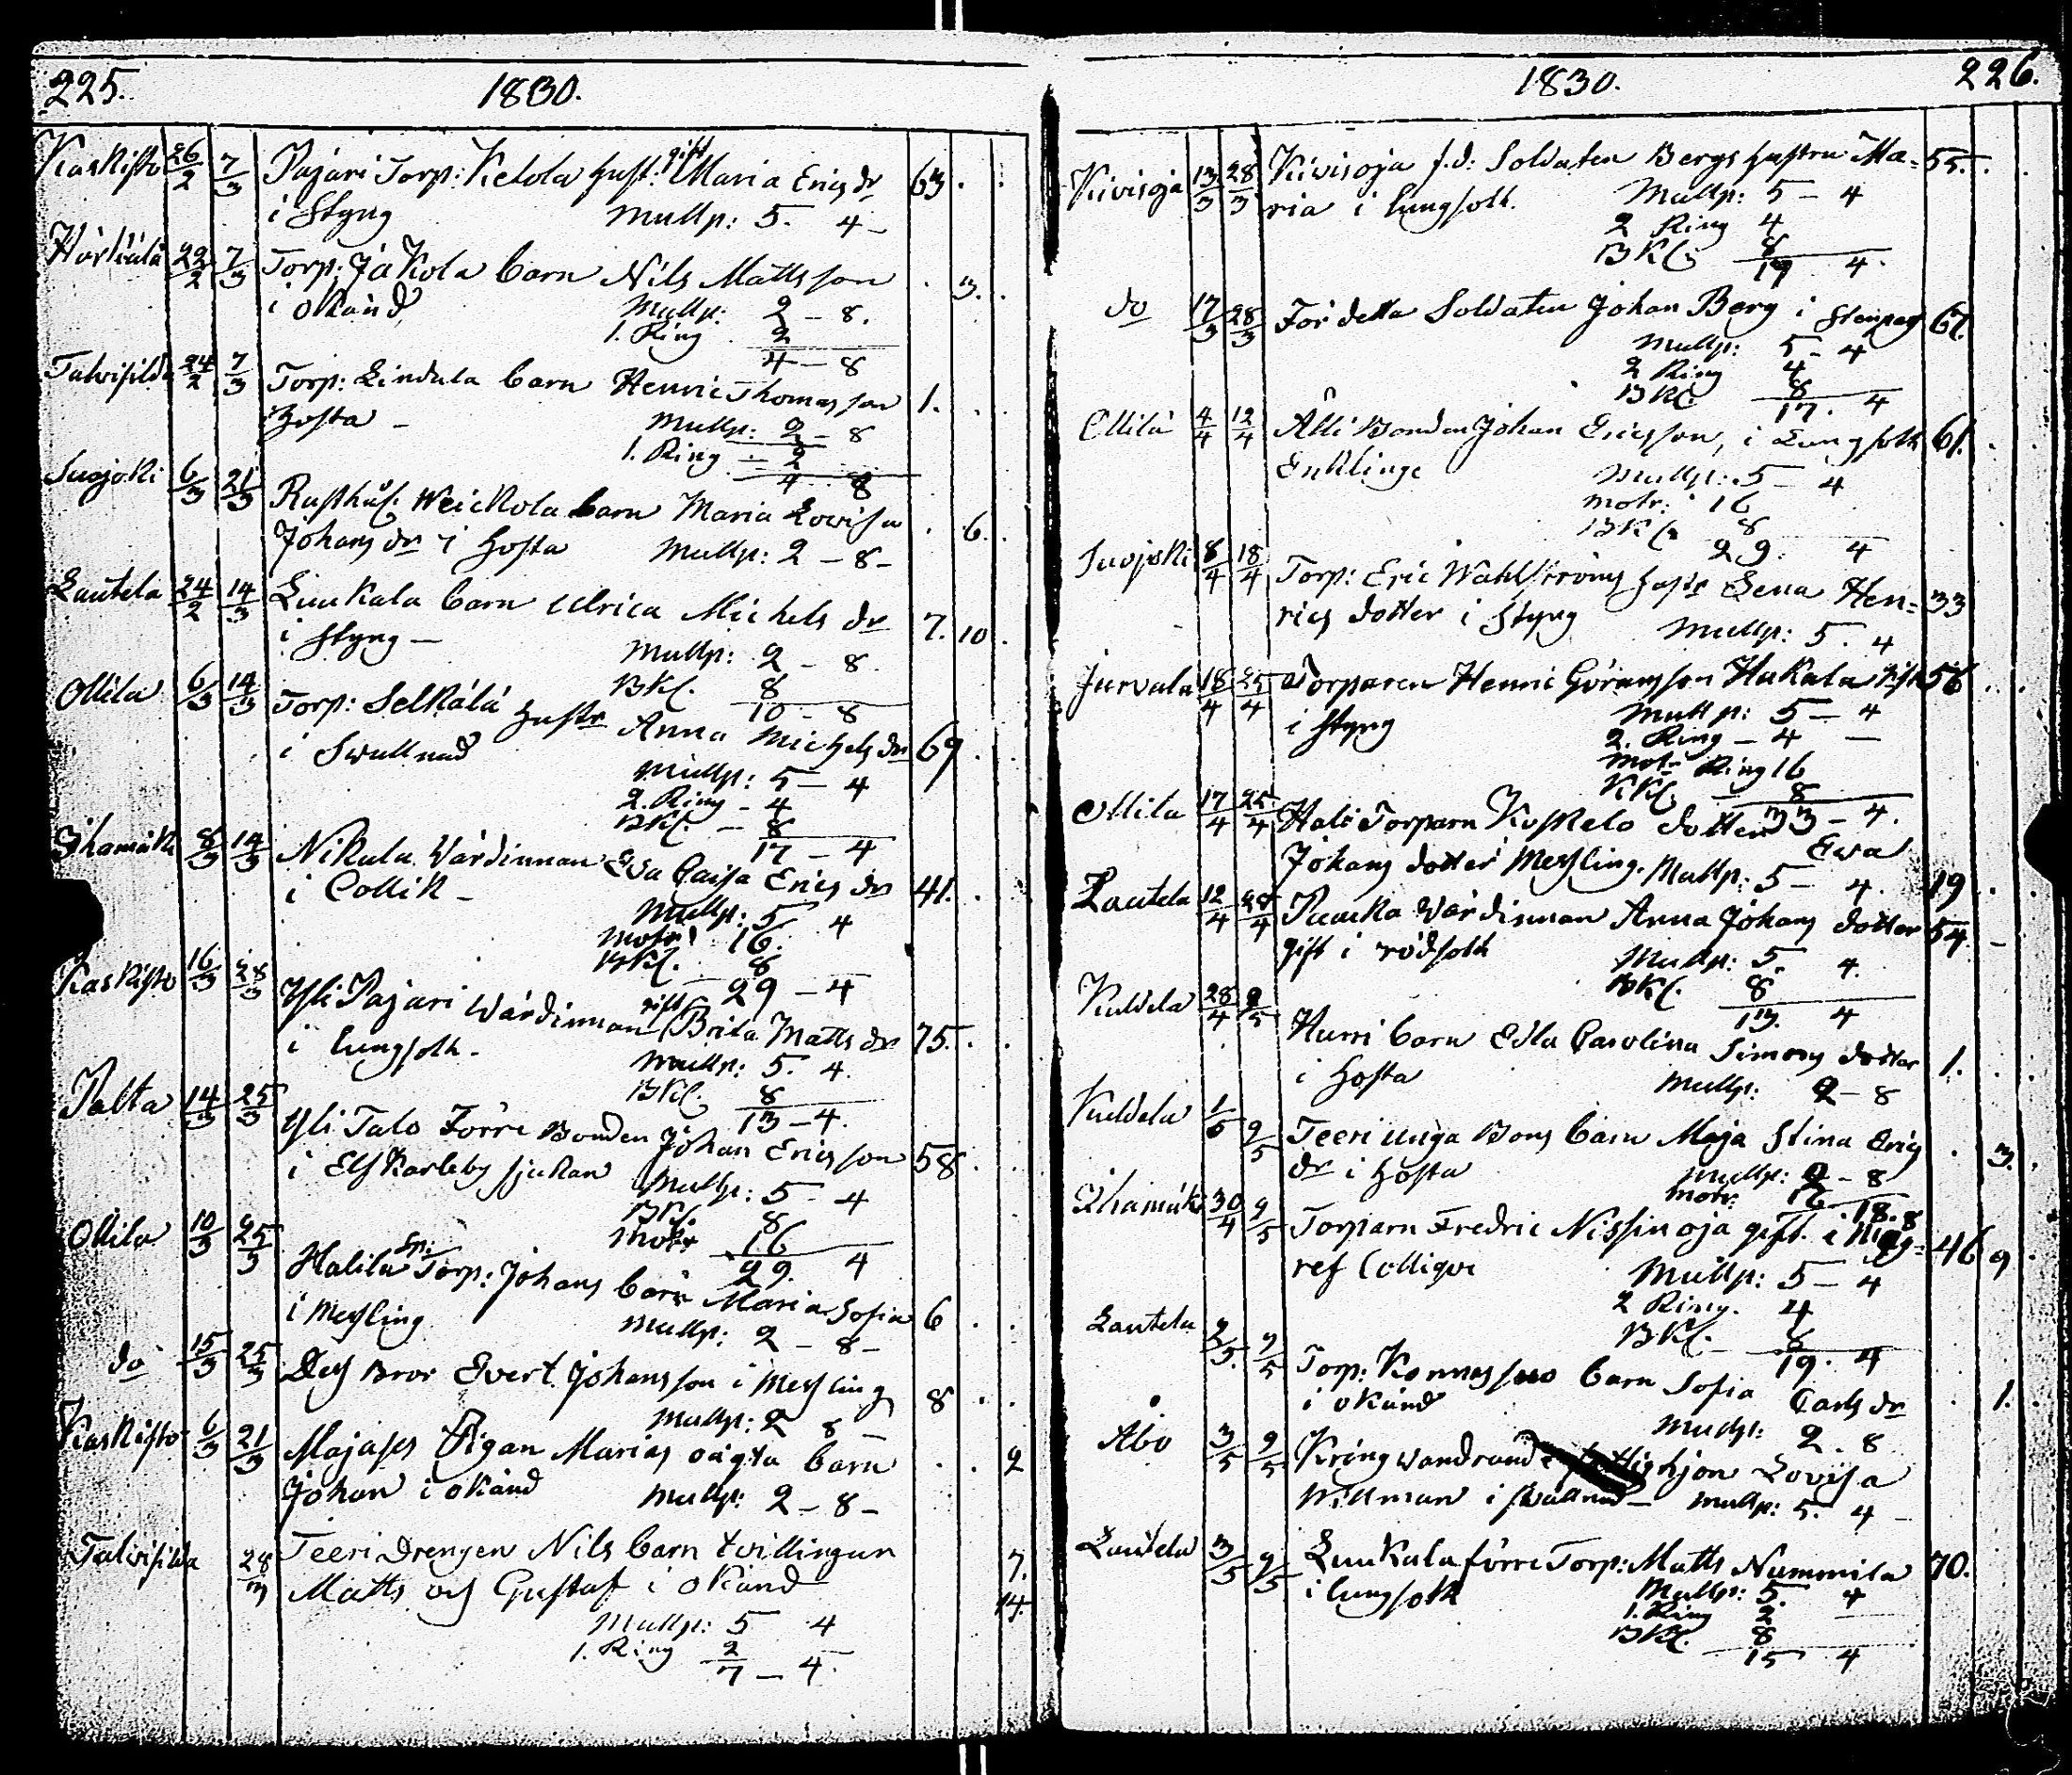 225. 1830.
Kaskisto 26/2 7/3 Pajari Torp: Ketola hust: gift Maria Erics dr 63.
i Styng Mullp: 5. 4 -
Härkälä 22/2 7/3 Torp: Jäkola barn Nils Mattsson . 3.
i okänd Mullp: 2 - 8.
1. Ring 2
4 - 8
Talvisilda 24/2 7/3 Torp: Lindula barn Henric Thomasson 1.
Hosta - Mullp: 2 - 8
1. Ring - 2
4 8
Suojoki 6/3 21/3 Rusthåll. Weickola barn Maria Lovisa . 6.
Johans dr i Hosta Mullp: 2 - 8 -
Lautela 24/2 14/3 Luukala barn Ulrica Michels dr 7. 10.
i Styng - Mullp: 2 - 8.
BKl. 8
10 - 8
Ollila 6/3 14/3 Torp: Selkälä hustr Anna Michels dr 69
i Swullnad
Mullp: 5 - 4
2. Ring - 4
BKl. - 8
17 - 4
Ihamäki 8/3 14/3 Nikula Wärdinnan Eva Caisa Erics dr 41.
i Collik -
Mullp: 5 4
Motr: 16.
BKl. 8
29 - 4
Kaskisto 16/3 28/3 Yli Pajari Wärdinnan gift Brita Matts dr 75.
i lungsoth.
Mullp: 5. 4.
BKl. 8
13 - 4.
Palta 14/3 25/3 Yli Talo Förre Bonden Johan Ericsson 58.
i Elfkarleby sjukan
Mullp: 5 - 4
BKl. 8
Motr 16
29. 4
Ollila 10/3 25/3 Halila Sp: Torp: Johans barn Maria Sofia 6
i Messling Mullp: 2 - 8 -
do 15/3 25/3 Dess Bror Evert Johansson i Messling 8
Mullp: 2 8 -
Kaskisto 6/3 21/3 Majases Pigan Marias oägta barn . . 2
Johan i okänd Mullp: 2 - 8 -
Talvisilda 28/3 Teeri Drengen Nils barn tvillingar 7.
Matts och Gustaf i okänd 14.
Mullp: 5 4
1. Ring 2
7 - 4.
1830. 226.
Kivisoja 13/3 28/3 Kivisoja f.d: Soldaten Bergs hustru Ma= 55.
ria i lungsoth. Mullp: 5 - 4
2 Ring 4
BKl. 8
17 4.
do 17/3 28/3 För detta Soldaten Johan Berg i Stenpass 67.
Mullp: 5 - 4
2 Ring 4
BKl. 8
17. 4
Ollila 4/4 12/4 Ålli Bonden Johan Ericsson, i Lungsoth 61.
Enklinge Mullp: 5 - 4
Motr: 16
BKl. 8
29. 4
Suojoki 8/4 18/4 Torp: Eric Wahlströms hustr Lena Hen= 33
rics dotter i Styng
Mullp: 5. 4
Jurvala 18/4 25/4 Torparen Henric Göransson Hakala gift 56
i Styng Mullp: 5 - 4
2. Ring - 4 -
Motr Ring 16
KKl. 8
33 - 4.
Ollila 17/4 25/4 Hali Torparn Koskelo dotter Ewa
Johans dotter Messling. Mullp: 5 - 4. 19
Lautela 12/4 25/4 Puucka Wärdinnan Anna Johans dotter 54.
gift i rödsoth Mullp: 5. 4.
BKl. 8
13. 4
Kuldela 28/4 9/5 Hurri barn Edla Carolina Simons dotter 1.
i Hosta Mullp: 2 - 8
Kuldela 1/5 9/5 Teeri unga Bons barn Maja Stina Erics . 3.
dr i Hosta Mullp: 2 - 8
Motr: 16
18. 8
Ihamäki 30/4 9/5 Torparn Fredric Nissinoja gift. i 46 9
ref Collique Mullp: 5 - 4
2 Ring. 4
BKl. 8
19. 4
Lautela 2/5. 9/5 Torp: Konnassuo barn Sofia Carls dr . 1.
i okänd Mullp: 2. 8
Åbo 3/5 9/5 Kringvandrande fattighjon Lovisa
Willman i Swullnad - Mullp: 5. 4 -
Lautela 3/5 9/5 Luukala förre Torp: Matts Nummila 70.
i lungsoth Mullp: 5. 4
1. Ring 2
BKl. 8
15 4